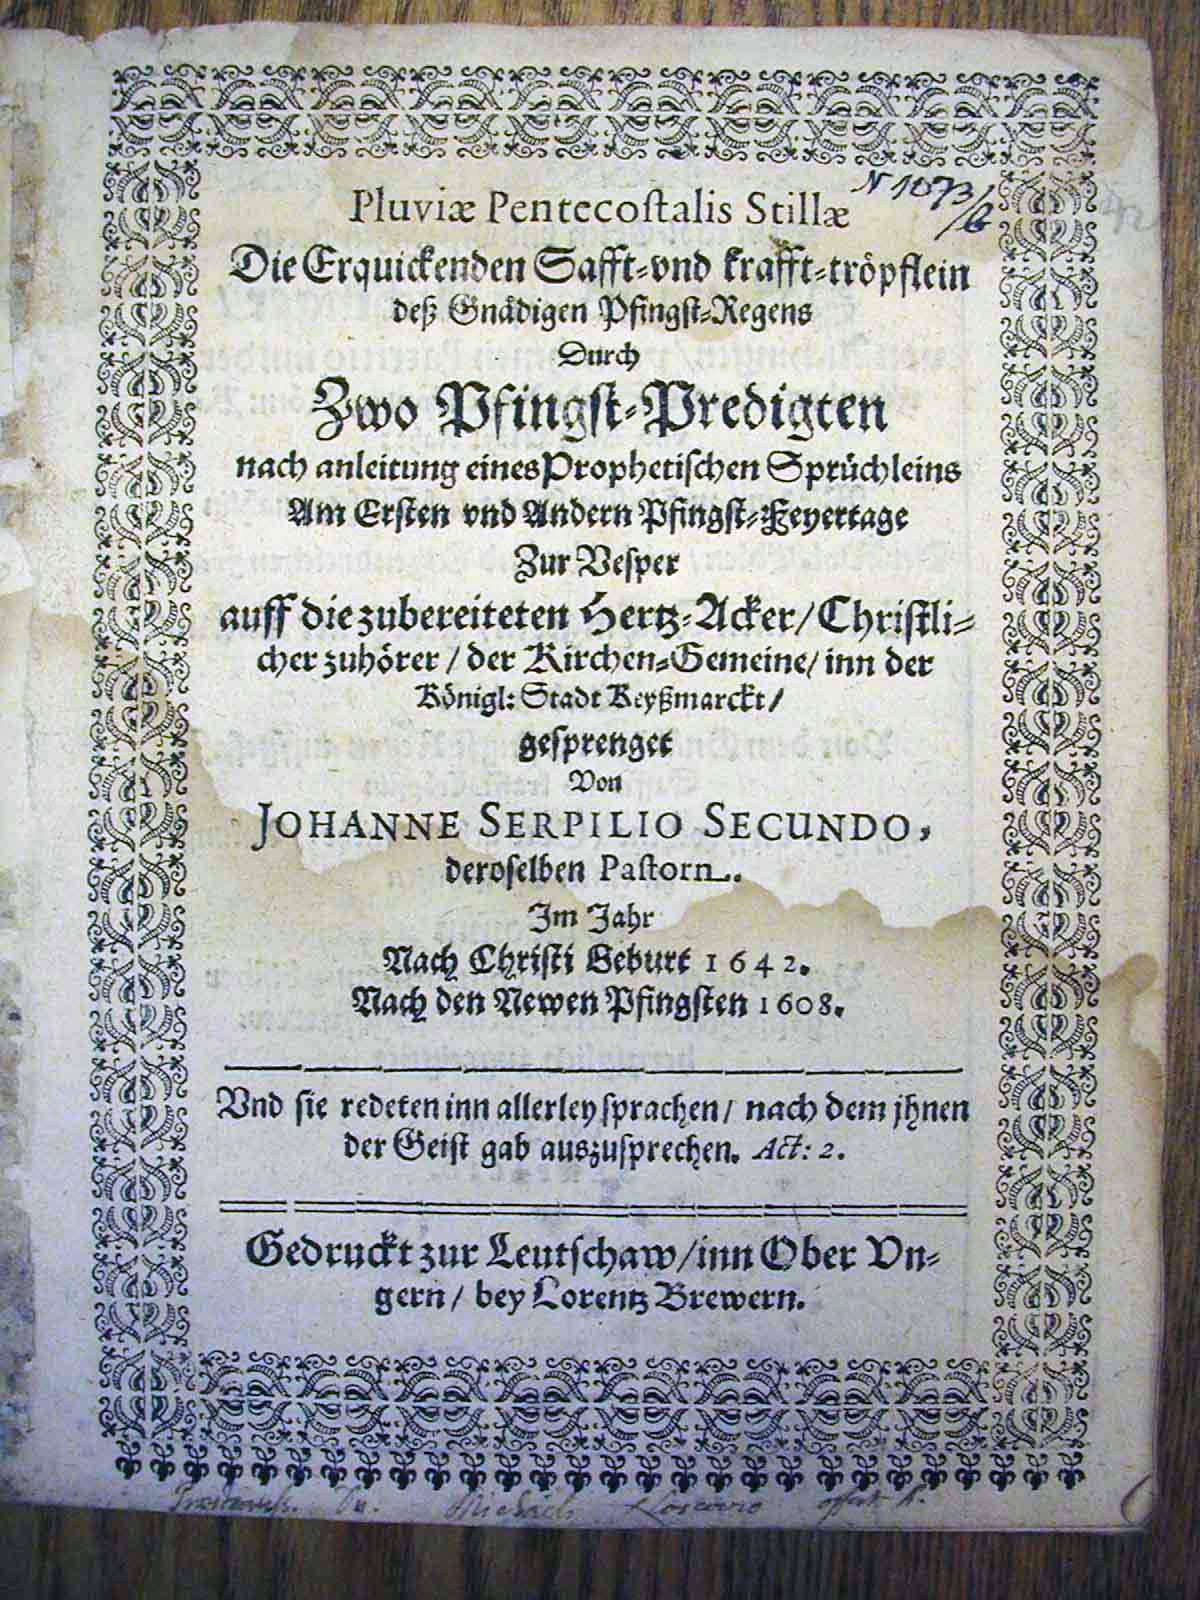 Pluviæ Pentecostalis Stillæ
N 1073/b
Die Erquickenden Safft-vnd krafft-tröpflein
deß Gnädigen Pfingst-Regens
Durch
Zwo Pfingst-Predigten
nach anleitung eines Prophetischen Sprüchleins
Am Ersten vnd Andern Pfingst-Feyertage
Zur Vesper
auff die zubereiteten Hertz-Acker/ Christli-
cher zuhörer/ der Kirchen-Gemeine/ inn der
Königl: Stadt Keyßmarckt/
gesprenget
Von
JOHANNE SERPILIO SECUNDO,
deroselben Pastorn.
Im Jahr
Nach Christi Geburt 1642.
Nach den Newen Pfingsten 1608.
Vnd sie redeten inn allerley sprachen/ nach dem jhnen
der Geist gab auszusprechen. Act: 2.
Gedruckt zur Leutschaw/ inn Ober Vn-
gern/ bey Lorentz Brewern.
Michael